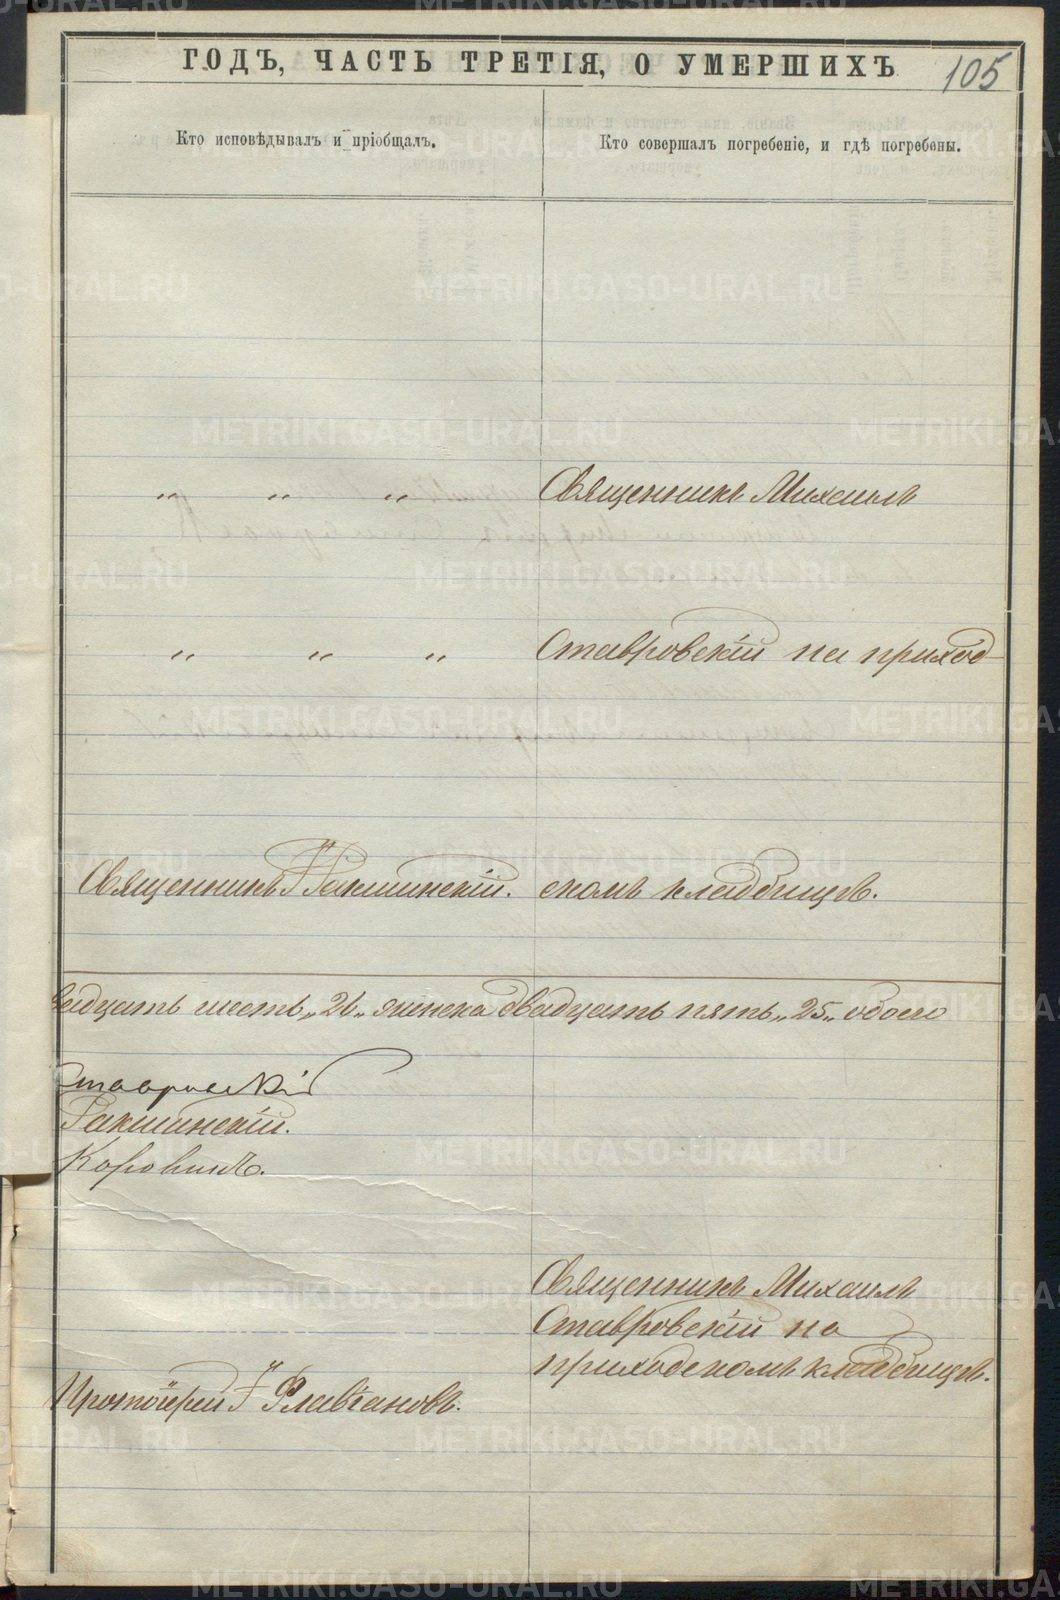 ГОДЪ, ЧАСТЬ ТРЕТІЯ, О УМЕРШИХЪ
105
Кто исповѣдывалъ и пріобщалъ.
Кто совершалъ погребеніе, и гдѣ погребены.
„ „ „ Священникъ Михаилъ
„ „ „ Ставровскій на приход-
Священникъ І Ѳакминскій. скомъ кладбищѣ.
вадцать шесть „26„ женска двадцать пять „25„ обоего
Ставровскій
Коровинъ.
Священникъ Михаилъ
Ставровскій на
приходскомъ кладбищѣ.
Протоіерей І Флавіановъ.
METRIKI.GASO-URAL.RU